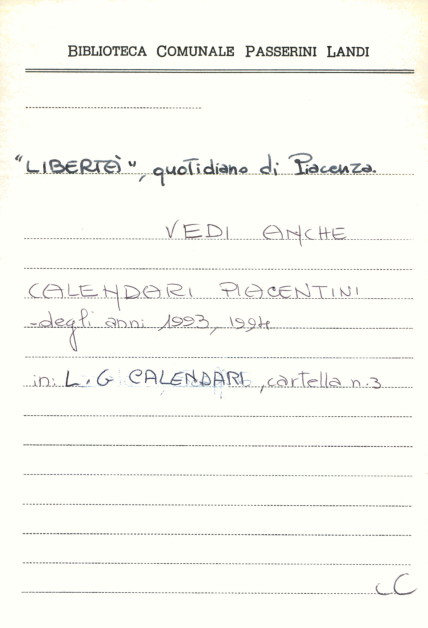 BIBLIOTECA COMUNALE PASSERINI LANDI
"LIBERTÀ", quotidiano di Piacenza.
VEDI ANCHE
CALENDARI PIACENTINI
-degli anni 1993, 1994
in: L.G CALENDARI, cartella n.3
CC